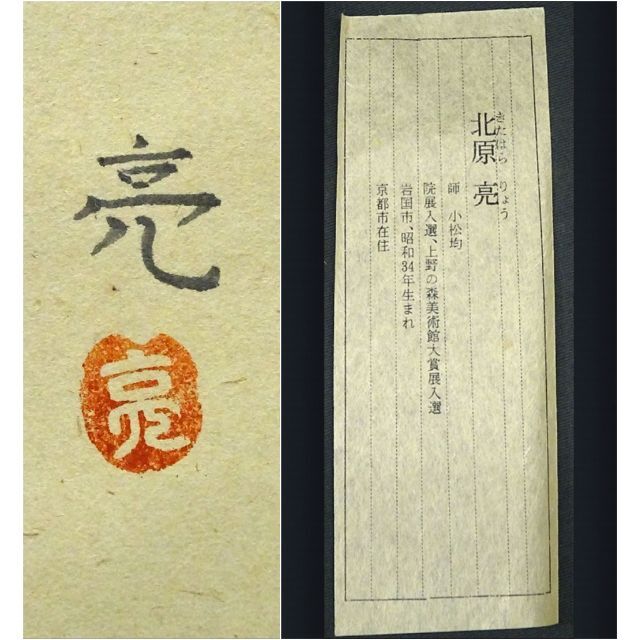 亮
亮
北原 亮
きたはら りょう
師 小松均
院展入選、上野の森美術館大賞展入選
岩国市、昭和34年生まれ
京都市在住